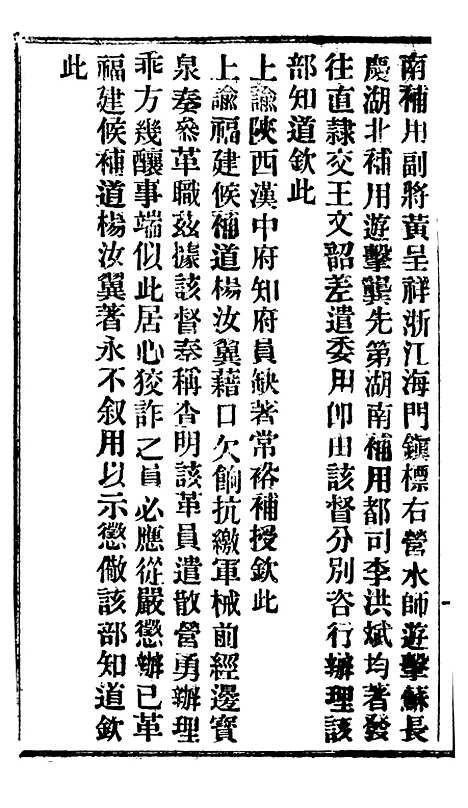 南補用副將黃呈祥浙江海門鎭標右營水師遊擊蘇長
慶湖北補用遊擊龔先第湖南補用都司李洪斌均著發
往直隷交王文韶差遣委用卽由該督分別咨行辦理該
部知道欽此
上諭陜西漢中府知府員缺著常裕補授欽此
上諭福建候補道楊汝翼藉口欠餉抗繳軍械前經邊寶
泉奏叅革職茲據該督奏稱查明該革員遣散營勇辦理
乖方幾釀事端似此居心狡詐之員必應從嚴懲辦已革
福建候補道楊汝翼著永不叙用以示懲儆該部知道欽
此